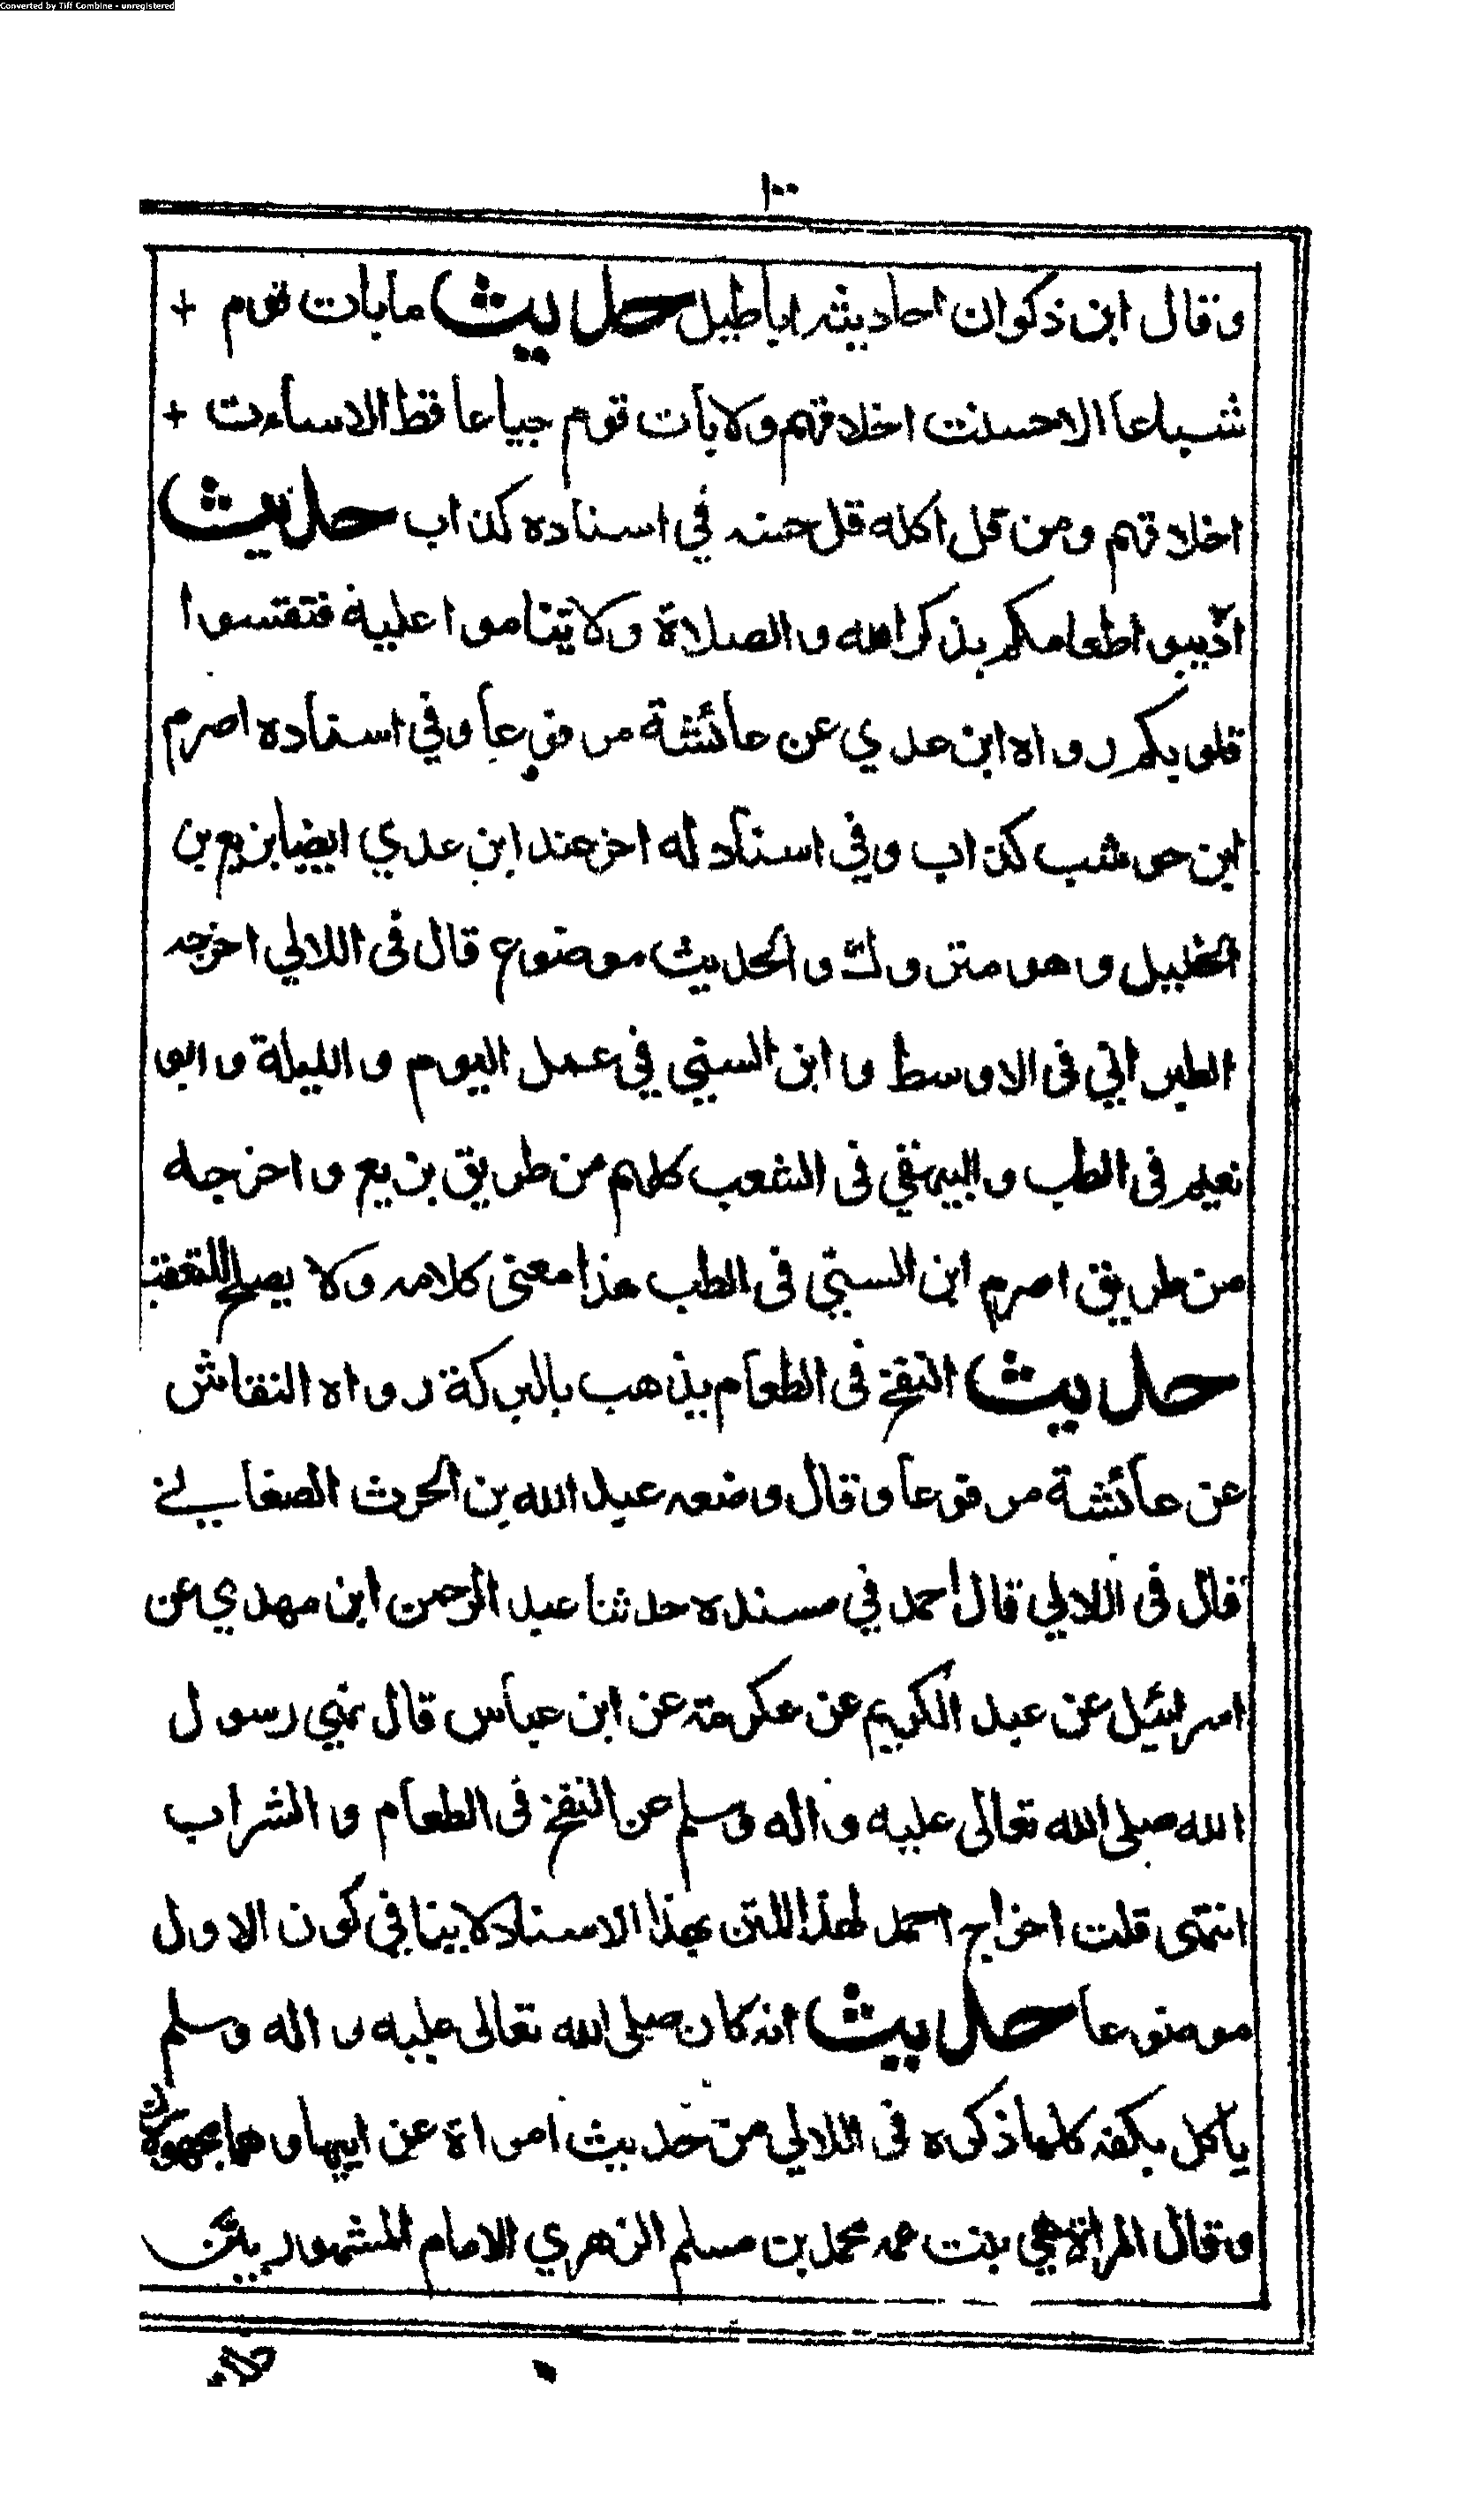 Converted by Tiff Combine - unregistered
١٠٠
وقال ابن ذكوان احاديثه اباطيل حديث ما بات قوم +
شباعا الا حسنت اخلاقهم ولا بات قوم جياعا قط الا ساءت +
اخلاقهم ومن قل اكله قل حسنه في اسناده كذاب حديث
اذيبوا طعامكم بذكر الله والصلاة ولا تناموا عليه فتقسوا
قلوبكم رواه ابن عدي عن عائشة مرفوعا وفي اسناده اصرم
ابن حوشب كذاب وفي اسناد له اخر عند ابن عدي ايضا بزيع بن
الخليل وهو متروك والحديث موضوع قال فى اللالي اخرجه
الطبراني فى الاوسط وابن السني في عمل اليوم والليلة وابو
نعيم فى الطب والبيهقي فى الشعب كلهم من طريق بزيع واخرجه
من طريق اصرم ابن السني فى الطب هذا معنى كلامه ولا يصلح للتعقب
حديث النفخ فى الطعام يذهب بالبركة رواه النقاش
عن عائشة مرفوعا وقال وضعه عبد الله بن الحرث الصغاني
قال فى اللالي قال احمد في مسنده حدثنا عبد الرحمن ابن مهدي عن
اسرائيل عن عبد الكريم عن عكرمة عن ابن عباس قال نهى رسول
الله صلى الله تعالى عليه واله وسلم عن النفخ فى الطعام والشراب
انتهى قلت اخراج احمد لهذا المتن بهذا الاسناد لا ينافي كون الاول
موضوعا حديث انه كان صلى الله تعالى عليه واله وسلم
يأكل بكفه كلها ذكره فى اللالي من حديث امراة عن ابيها وهما مجهولان
وقال المراة هي بنت عمه محمد بن مسلم الزهري الامام المشهور